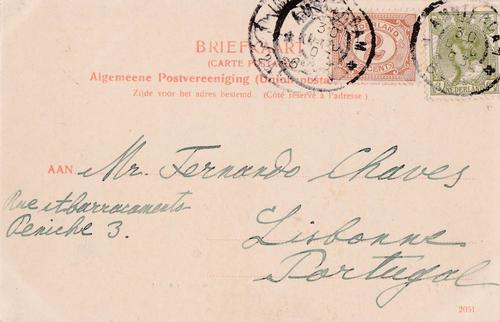 BRIEFKAART
(CARTE POSTALE)
Algemeene Postvereeniging (Union postale
Zijde voor het adres bestemd. (Côté réservé à l'adresse.)
AMSTERDAM
AMSTERDAM
CENT
NEDERLAND
AAN Mr. Fernando Chaves
Rue Abarracamento
Peniche 3.
Lisbonne
Portugal
2051